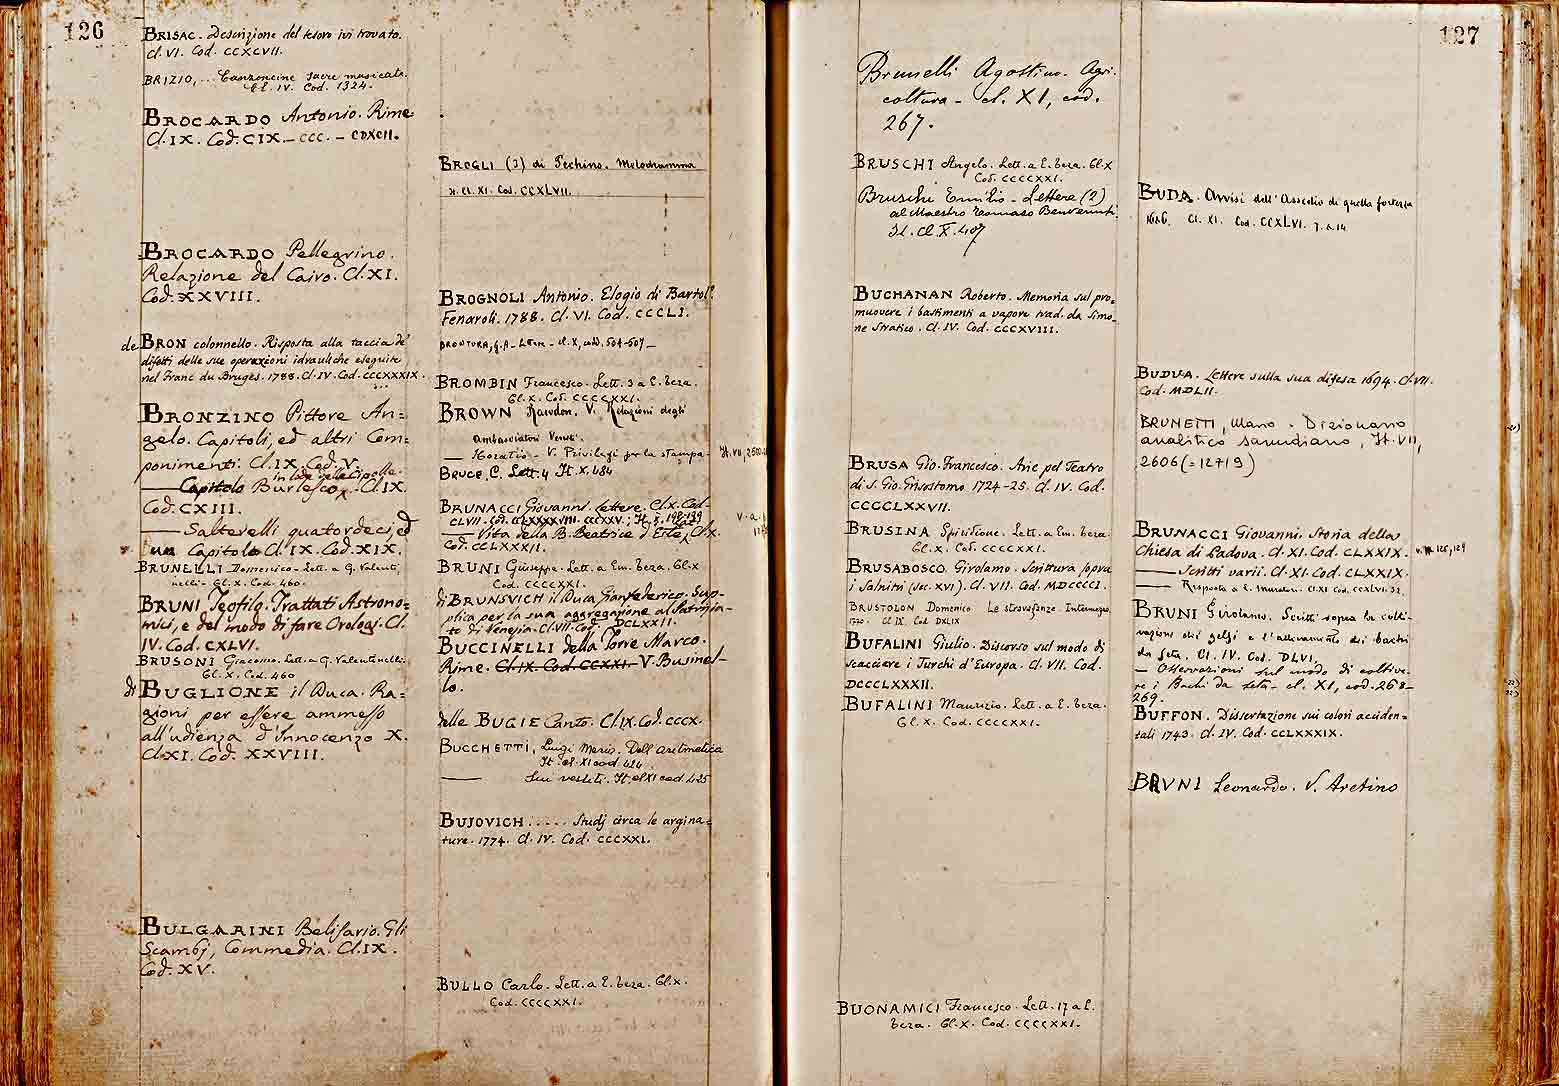 126
BRISAC. Descrizione del tesoro ivi trovato.
Cl. VI. Cod. CCXCVII.
BRIZIO, ... Canzoncine sacre musicate.
Cl. IV. Cod. 1324.
BROCARDO Antonio. Rime
Cl. IX. Cod. CIX. – CCC. – CDXCII.
BROCARDO Pellegrino.
Relazione del Cairo. Cl. XI.
Cod. XXVIII.
de BRON colonnello. Risposta alla taccia de'
difetti delle sue operazioni idrauliche eseguite
nel Franc du Bruges. 1788. Cl. IV. Cod. CCCXXXIX.
BRONZINO Pittore An=
gelo. Capitoli, ed altri Com=
ponimenti. Cl. IX. Cod. V.
in lode delle Cipolle.
—— Capitolo Burlesco. Cl. IX.
Cod. CXIII.
—— Salterelli quatordeci, ed
un Capitolo Cl. IX. Cod. XIX.
BRUNELLI Domenico – Lett. a G. Valenti,
nelli – Cl. X. Cod. 460.
BRUNI Teofilo. Trattati Astrono=
mici, e del modo di fare Orologi. Cl.
IV. Cod. CXLVI.
BRUSONI Giacomo. Lett. a G. Valentinelli.
Cl. X. Cod. 460
di BUGLIONE il Duca. Ra=
gioni per essere ammesso
all'udienza d'Innocenzo X.
Cl. XI. Cod. XXVIII.
BULGARINI Belisario. Gli
Scambj, Commedia. Cl. IX.
Cod. XV.
BROGLI (J) di Techino. Melodramma
It. Cl. XI. Cod. CCXLVII.
BROGNOLI Antonio. Elogio di Bartol.
Fenaroli. 1788. Cl. VI. Cod. CCCLI.
BRONTURA, G. A – Lettere – cl. X, cod. 504-507 –
BROMBIN Francesco. Lett. 3 a E. Teza.
Cl. X. Cod. CCCCXXI.
BROWN Rawdon. V. Relazioni degli
Ambasciatori Veneti.
—— Horatio – V. Privilegi per la stampa – It. VII, 2500
BRUCE, C. Lett. 4 It. X. 484
BRUNACCI Giovanni. Lettere. Cl. X. Cod.
CLVII. Cod. CCLXXXVIII. CCCXXV.
—— Vita della B. Beatrice d'Este. Cl. X.
Cod. CCLXXXII.
BRUNI Giuseppe. Lett. a Em. Teza. Cl. X
Cod. CCCCXXI.
di BRUNSVICH il Duca Gianfederico. Sup=
plica per la sua aggregazione al Patrizia=
to di Venezia. Cl. VII. Cod. DCLXXII.
BUCCINELLI della Torre Marco.
Rime. Cl. IX. Cod. CCXXI. V. Businel=
lo.
delle BUGIE Canto. Cl. IX. Cod. CCCX.
BUCCHETTI, Luigi Mario. Dell'aritmetica
It. cl. XI cod. 424.
—— Sui vestiti. It. cl XI cod 425
BUJOVICH ..... Studj circa le argina=
ture. 1774. Cl. IV. Cod. CCCXXI.
BULLO Carlo. Lett. a E. Teza. Cl. X.
Cod. CCCCXXI.
127
Brunelli Agostino. Agri.
coltura – cl. XI, cod.
267.
BRUSCHI Angelo. Lett. a E. Teza. Cl. X
Cod. CCCCXXI.
Bruschi Emilio – Lettere (2)
al Maestro Tomaso Benvenuti
It. Cl. X. 407
BUCHANAN Roberto. Memoria sul pro=
muovere i bastimenti a vapore trad. da Simo=
ne Stratico. Cl. IV. Cod. CCCXVIII.
BRUSA Gio. Francesco. Arie pel Teatro
di S. Gio. Grisostomo 1724-25. Cl. IV. Cod.
CCCCLXXVII.
BRUSINA Spiridione. Lett. a Em. Teza.
Cl. X. Cod. CCCCXXI.
BRUSABOSCO Girolamo. Scrittura sopra
i Salnitri (sec. XVI). Cl. VII. Cod. MDCCCCI.
BRUSTOLON Domenico Le stravaganze. Intermezzo
Cl IX. Cod. DXLIX
BUFALINI Giulio. Discorso sul modo di
scacciare i Turchi d'Europa. Cl. VII. Cod.
DCCCLXXXII.
BUFALINI Maurizio. Lett. a E. Teza.
Cl. X. Cod. CCCCXXI.
BUONAMICI Francesco. Lett. 17 a E.
Teza. Cl. X. Cod. CCCCXXI.
BUDA. Avvisi dell'Assedio di quella fortezza
1686. Cl. XI. Cod. CCXLVI. 7. a. 14
BUDUA. Lettere sulla sua difesa 1694. Cl. VII.
Cod. MDLII.
BRUNETTI, Mario. Dizionario
analitico sanudiano, It. VII,
2606 (= 12719)
BRUNACCI Giovanni. Storia della
Chiesa di Padova. Cl. XI. Cod. CLXXIX.
—— Scritti varii. Cl. XI. Cod. CLXXIX.
—— Risposta a L. Muratori. Cl. XI Cod. CCXLVI. 32.
BRUNI Girolamo. Scritti sopra la colti=
vazione dei gelsi e l'allevamento dei bachi
da seta. Cl. IV. Cod. DLVI.
– Osservazioni sul modo di coltiva=
re i Bachi da seta – cl. XI, cod. 268–
269.
BUFFON. Dissertazione sui colori acciden=
tali 1743. Cl. IV. Cod. CCLXXXIX.
BRUNI Leonardo. V. Aretino